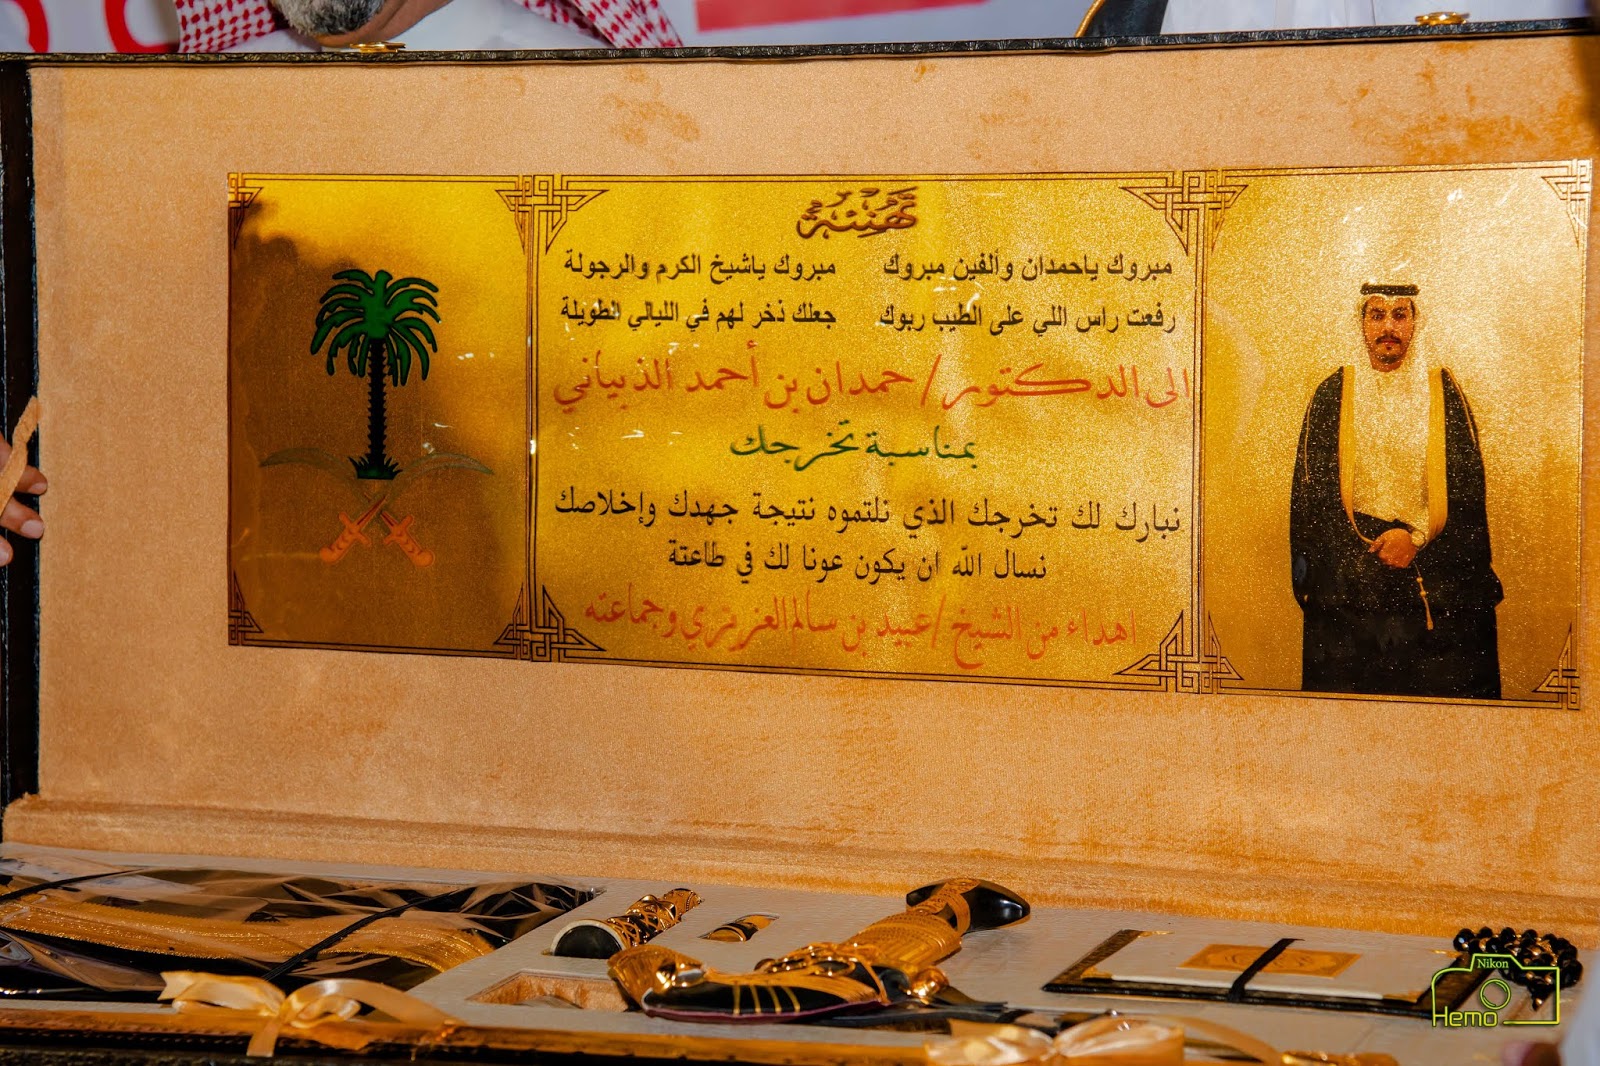 تهنئة
مبروك ياحمدان وألفين مبروك مبروك ياشيخ الكرم والرجولة
رفعت راس اللي على الطيب ربوك جعلك ذخر لهم في الليالي الطويلة
الى الدكتور / حمدان بن أحمد الذبياني
بمناسبة تخرجك
نبارك لك تخرجك الذي نلتموه نتيجة جهدك وإخلاصك
نسال الله ان يكون عونا لك في طاعتة
اهداء من الشيخ / عبيد بن سالم العزيزي وجماعته
Nikon
Hemo